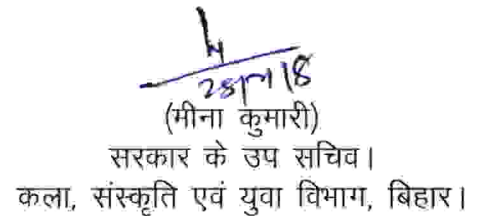 (मीना कुमारी)
सरकार के उप सचिव।
कला, संस्कृति एवं युवा विभाग, बिहार।